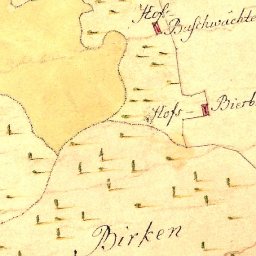 Hof-
Buschwächte
Hofs- Bierb
Birken